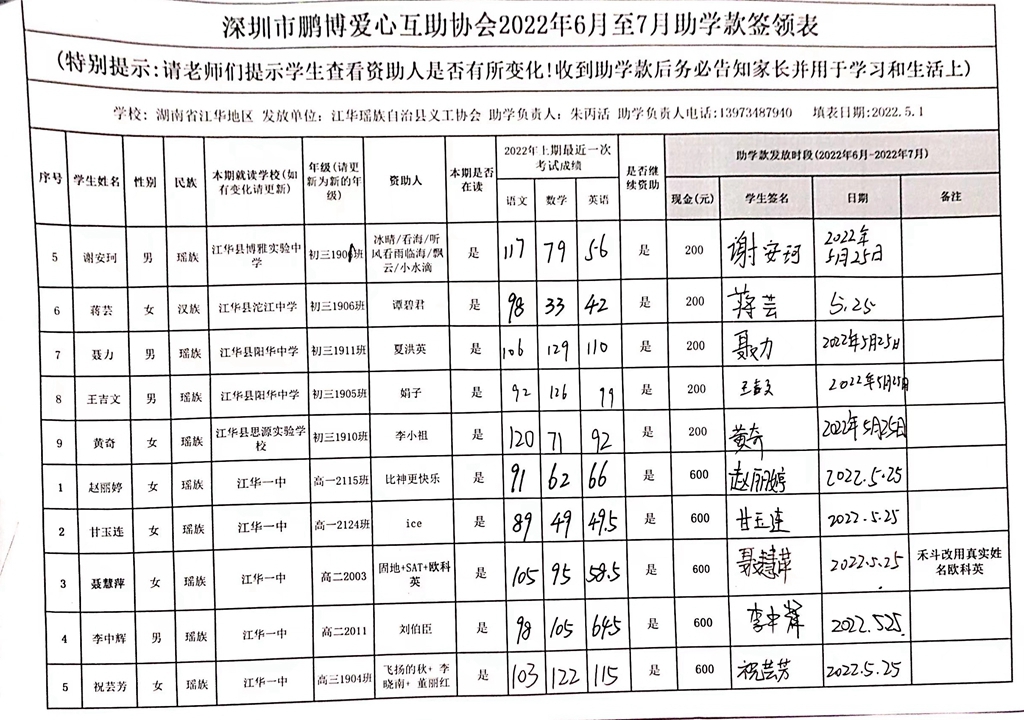 深圳市鹏博爱心互助协会2022年6月至7月助学款签领表
(特别提示:请老师们提示学生查看资助人是否有所变化!收到助学款后务必告知家长并用于学习和生活上)
学校: 湖南省江华地区 发放单位: 江华瑶族自治县义工协会 助学负责人: 朱丙活 助学负责人电话:13973487940 填表日期:2022.5.1
序号 学生姓名 性别 民族 本期就读学校(如有变化请更新) 年级(请更新为新的年级) 资助人 本期是否在读 2022年上期最近一次考试成绩 是否继续资助 助学款发放时段(2022年6月-2022年7月)
语文 数学 英语 现金(元) 学生签名 日期 备注
5 谢安珂 男 瑶族 江华县博雅实验中学 初三190班 冰晴/看海/听风看雨临海/飘云/小水滴 是 117 79 56 是 200 谢安珂 2022年5月25日
6 蒋芸 女 汉族 江华县沱江中学 初三1906班 谭碧君 是 98 33 42 是 200 蒋芸 5.25
7 聂力 男 瑶族 江华县阳华中学 初三1911班 夏洪英 是 106 129 110 是 200 聂力 2022年5月25日
8 王吉文 男 瑶族 江华县阳华中学 初三1905班 娟子 是 92 126 99 是 200 王吉文 2022年5月25日
9 黄奇 女 瑶族 江华县思源实验学校 初三1910班 李小祖 是 120 71 92 是 200 黄奇 2022年5月25日
1 赵丽婷 女 瑶族 江华一中 高一2115班 比神更快乐 是 91 62 66 是 600 赵丽婷 2022.5.25
2 甘玉连 女 瑶族 江华一中 高一2124班 ice 是 89 49 49.5 是 600 甘玉连 2022.5.25
3 聂慧萍 女 瑶族 江华一中 高二2003 固地+SAT+欧科英 是 105 95 58.5 是 600 聂慧萍 2022.5.25 禾斗改用真实姓名欧科英
4 李中辉 男 瑶族 江华一中 高二2011 刘伯臣 是 98 105 64.5 是 600 李中辉 2022.5.25.
5 祝芸芳 女 瑶族 江华一中 高三1904班 飞扬的秋+ 李晓南+ 董丽红 是 103 122 115 是 600 祝芸芳 2022.5.25